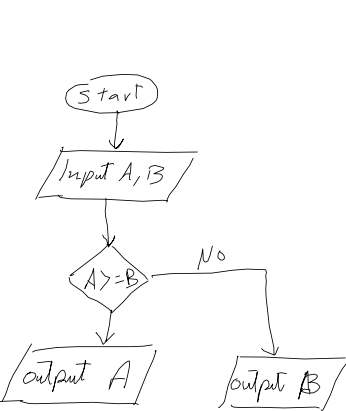 Start
Input A, B
A>=B
No
output A
output B